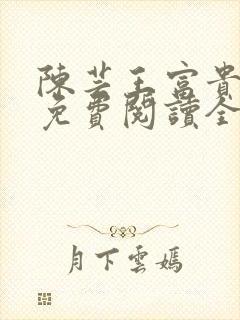 陳芸王富貴
免費閱讀全
月下雲嫣